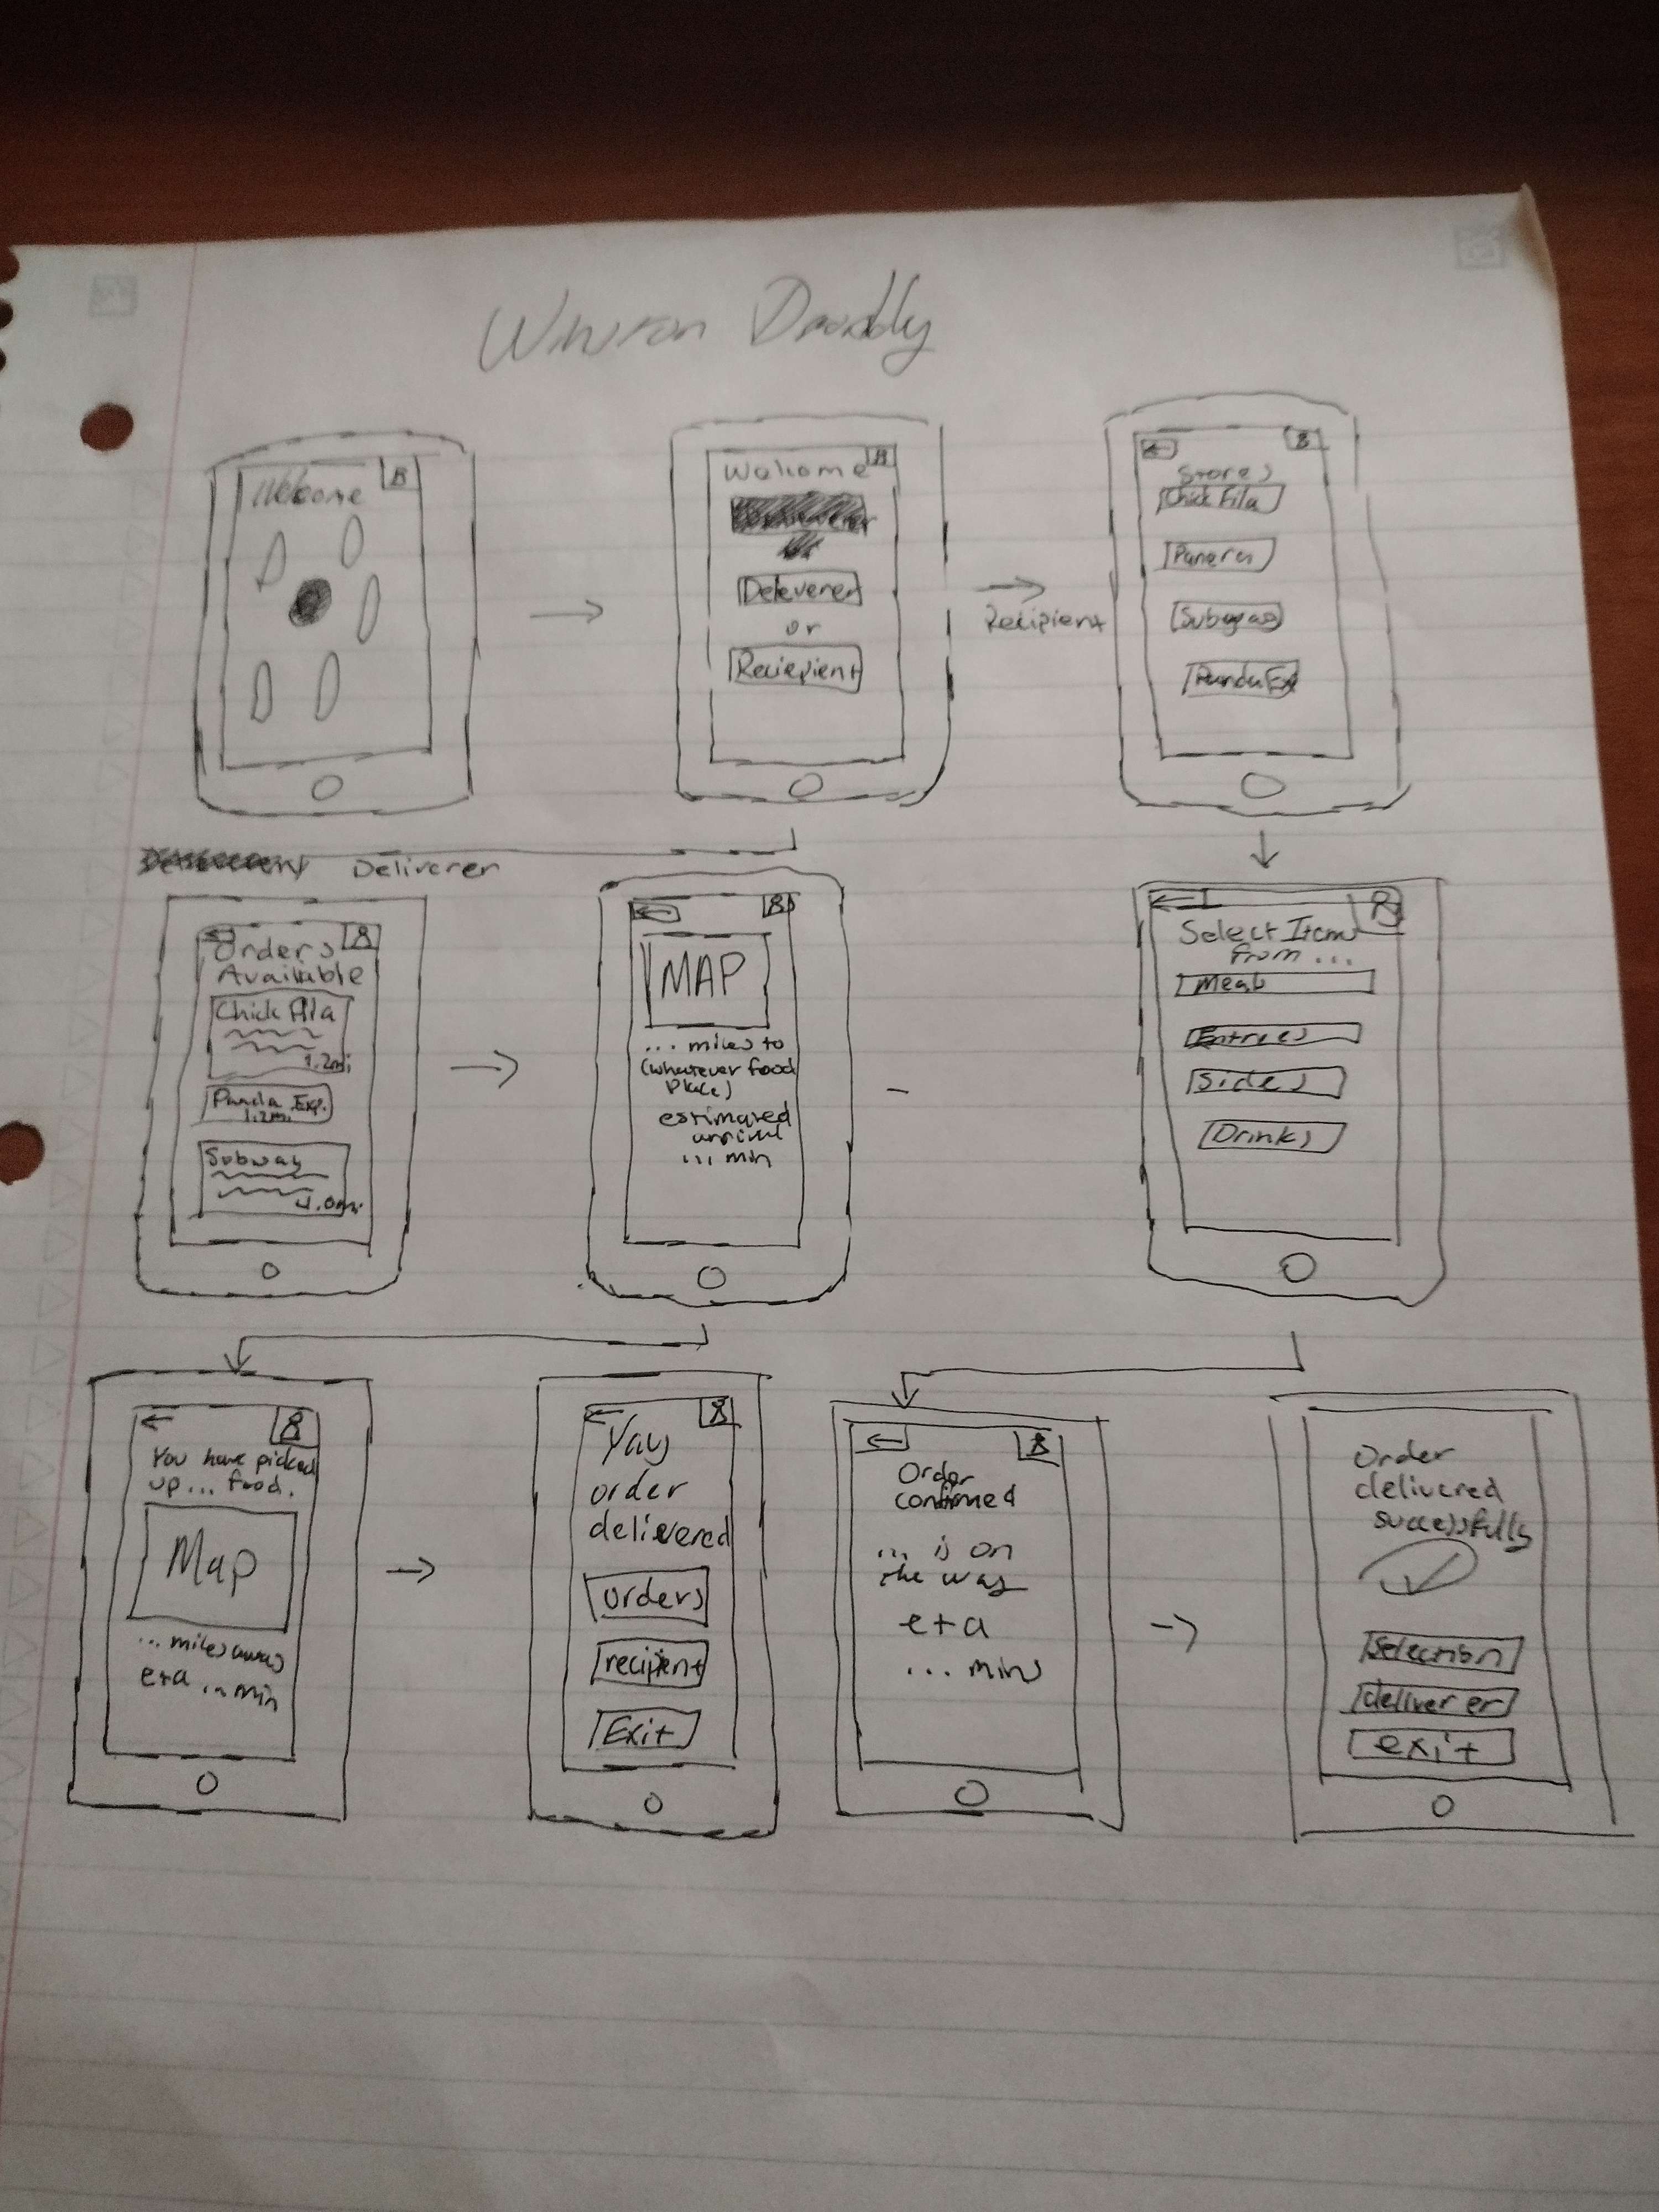 Welcome
Welcome
Deleverer
or
Reciepient
Recipient
Stores
Chick Fila
Panera
Subway
Panda Ex
Deliverer
Orders
Available
Chick Fila
1.2mi
Panda Exp.
1.2mi.
Subway
4.0mi.
MAP
... miles to
(whatever food
place)
estimated
arrival
... min
Select Item
from ...
Meals
Entrees
Sides
Drinks
You have picked
up ... food.
Map
... miles away
eta ... min
Yay
order
delivered
orders
recipient
Exit
Order
confirmed
... is on
the way
eta
... mins
Order
delivered
successfully
Selection
deliverer
exit